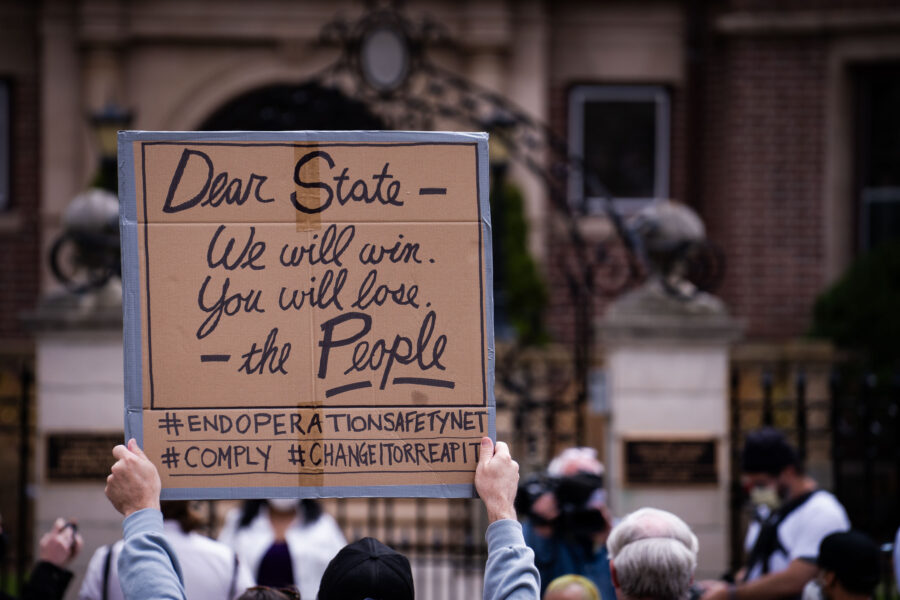 Dear State —
We will win.
You will lose.
— the People
#ENDOPERATIONSAFETYNET
#COMPLY #CHANGEITORREAPIT